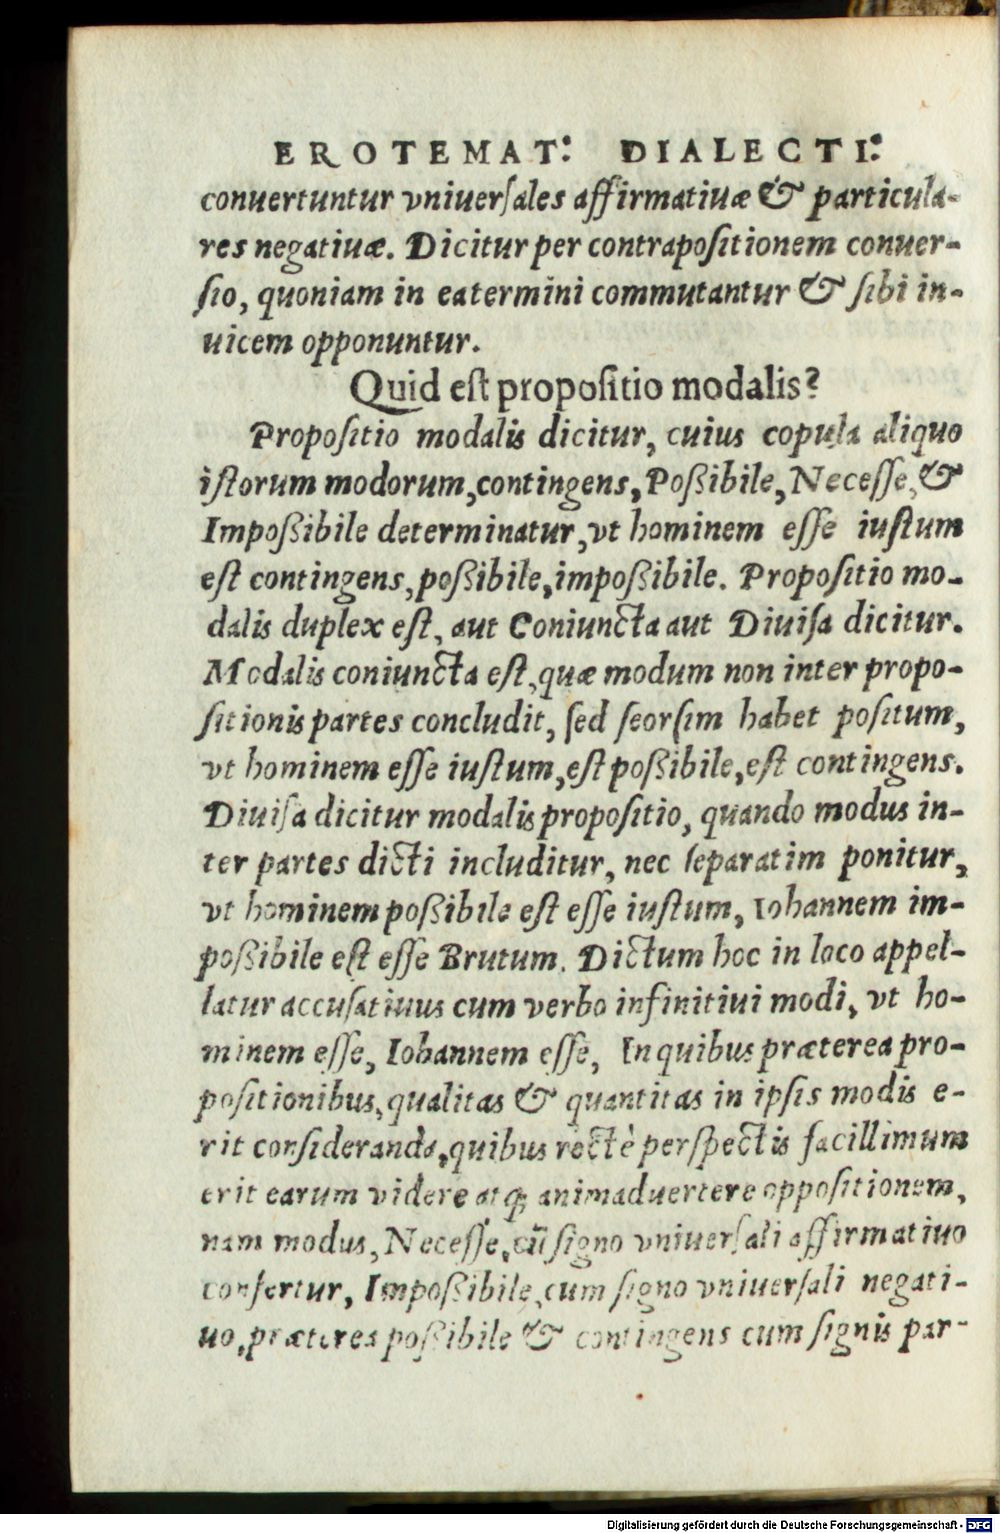 EROTEMAT: DIALECTI:
conuertuntur vniuerſales affirmatiuæ & particula-
res negatiuæ. Dicitur per contrapoſitionem conuer-
ſio, quoniam in ea termini commutantur & ſibi in-
uicem opponuntur.
Quid eſt propoſitio modalis?
Propoſitio modalis dicitur, cuius copula aliquo
iſtorum modorum, contingens, Poßibile, Neceſſe, &
Impoßibile determinatur, vt hominem eſſe iuſtum
eſt contingens, poßibile, impoßibile. Propoſitio mo-
dalis duplex eſt, aut Coniuncta aut Diuiſa dicitur.
Modalis coniuncta eſt, quæ modum non inter propo-
ſitionis partes concludit, ſed ſeorſim habet poſitum,
vt hominem eſſe iuſtum, eſt poßibile, eſt contingens.
Diuiſa dicitur modalis propoſitio, quando modus in-
ter partes dicti includitur, nec ſeparatim ponitur,
vt hominem poßibile eſt eſſe iuſtum, Iohannem im-
poßibile eſt eſſe Brutum. Dictum hoc in loco appel-
latur accuſatiuus cum verbo infinitiui modi, vt ho-
minem eſſe, Iohannem eſſe, In quibus præterea pro-
poſitionibus, qualitas & quantitas in ipſis modis e-
rit conſideranda, quibus rectè perſpectis facillimum
erit earum videre atq; animaduertere oppoſitionem,
nam modus, Neceſſe, cū ſigno vniuerſali affirmatiuo
confertur, Impoßibile, cum ſigno vniuerſali negati-
uo, præterea poßibile & contingens cum ſignis par-
Digitalisierung gefördert durch die Deutsche Forschungsgemeinschaft - DFG